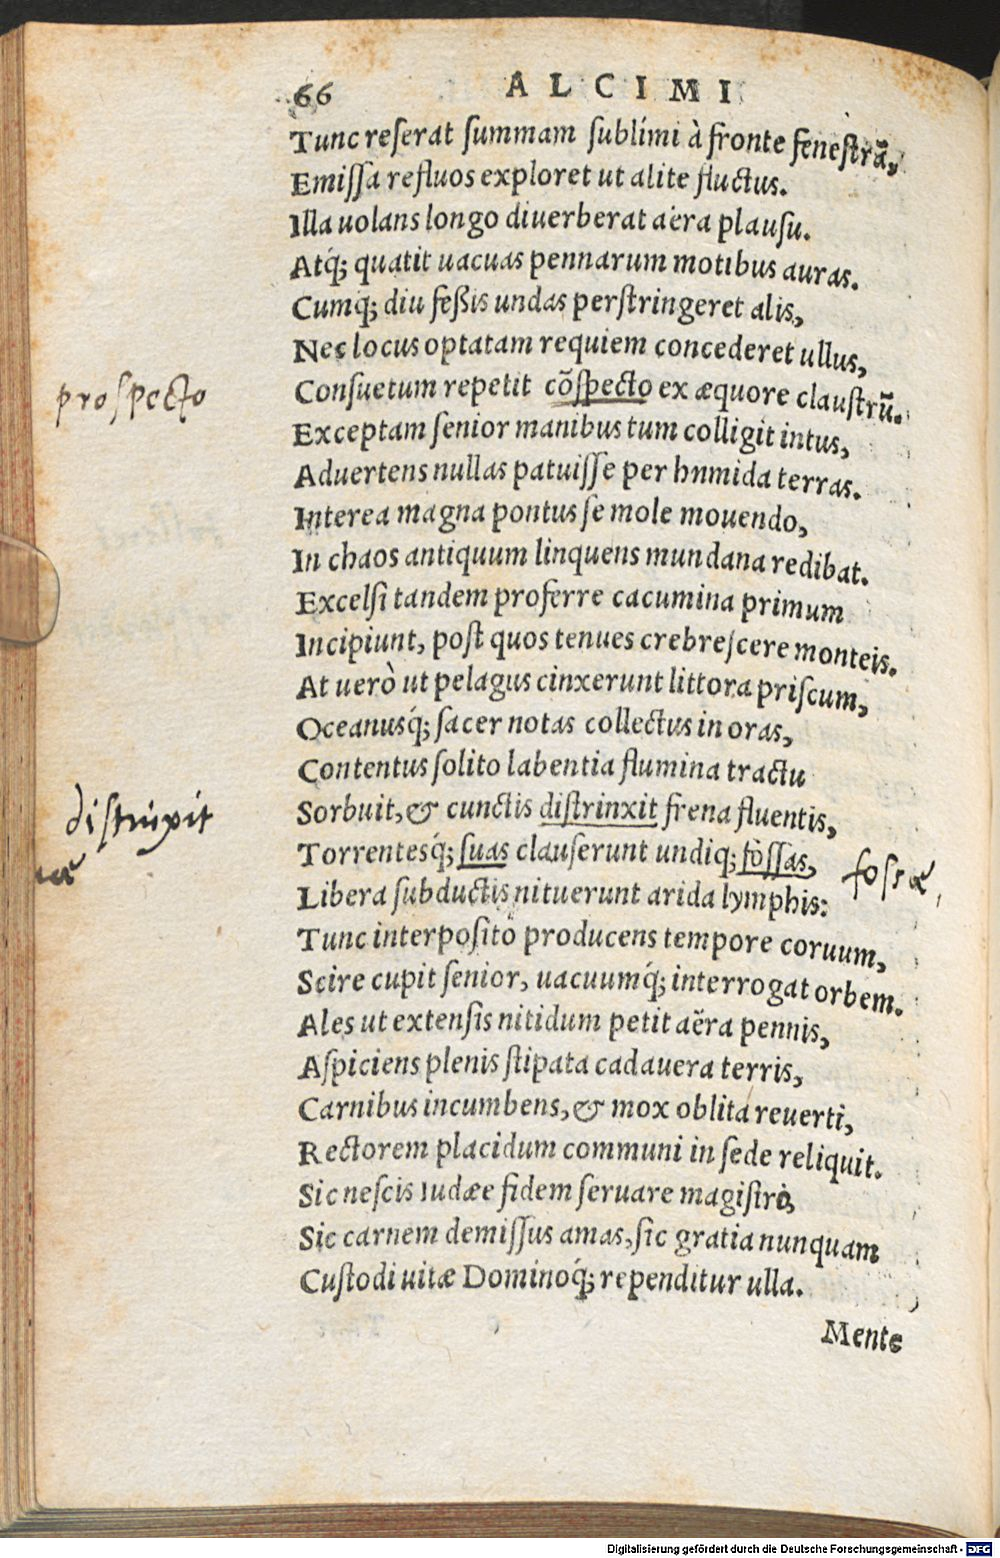 66 ALCIMI
Tunc reſerat ſummam ſublimi à fronte feneſtrā,
Emiſſa refluos exploret ut alite fluctus.
Illa uolans longo diuerberat aëra plauſu.
Atq́; quatit uacuas pennarum motibus auras.
Cumq́; diu feßis undas perſtringeret alis,
Nec locus optatam requiem concederet ullus,
prospecto
Conſuetum repetit cōſpecto ex æquore clauſtrū.
Exceptam ſenior manibus tum colligit intus,
Aduertens nullas patuiſſe per hnmida terras.
Interea magna pontus ſe mole mouendo,
In chaos antiquum linquens mundana redibat.
Excelſi tandem proferre cacumina primum
Incipiunt, poſt quos tenues crebreſcere monteis.
At uerò ut pelagus cinxerunt littora priſcum,
Oceanusq́; ſacer notas collectus in oras,
Contentus ſolito labentia flumina tractu
distrinxit
Sorbuit, & cunctis diſtrinxit frena fluentis,
Torrentesq́; ſuas clauſerunt undiq; foſſas,
fossæ
Libera ſubductis nituerunt arida lymphis:
Tunc interpoſito producens tempore coruum,
Scire cupit ſenior, uacuumq́; interrogat orbem.
Ales ut extenſis nitidum petit aëra pennis,
Aſpiciens plenis ſtipata cadauera terris,
Carnibus incumbens, & mox oblita reuerti,
Rectorem placidum communi in ſede reliquit.
Sic neſcis Iudæe fidem ſeruare magiſtro,
Sic carnem demiſſus amas, ſic gratia nunquam
Cuſtodi uitæ Dominoq́; rependitur ulla.
Mente
Digitalisierung gefördert durch die Deutsche Forschungsgemeinschaft - DFG